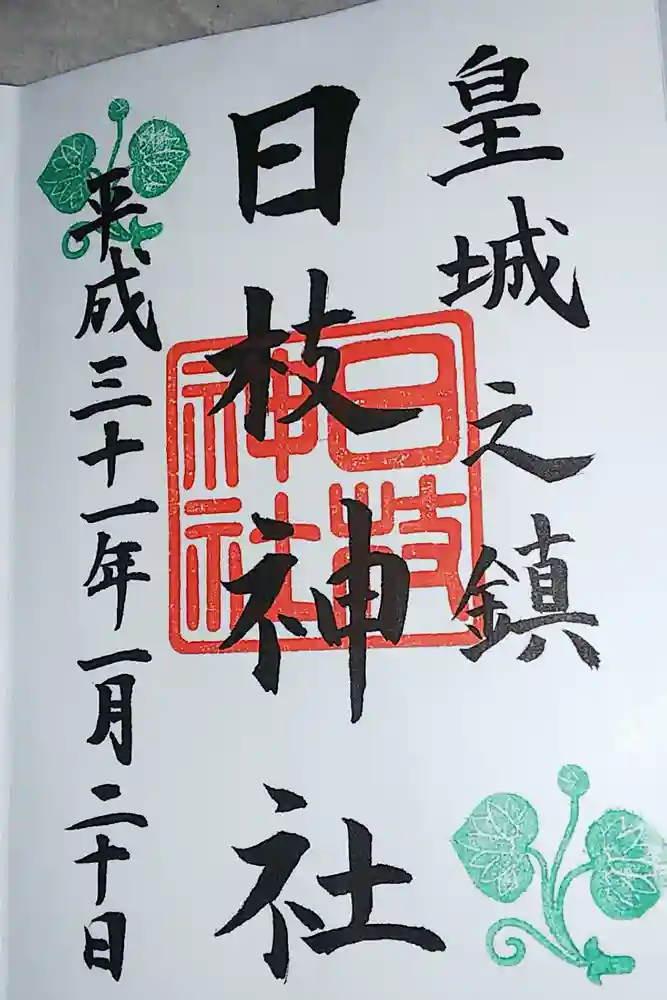 皇城之鎮
日枝神社
日枝神社
平成三十一年一月二十日